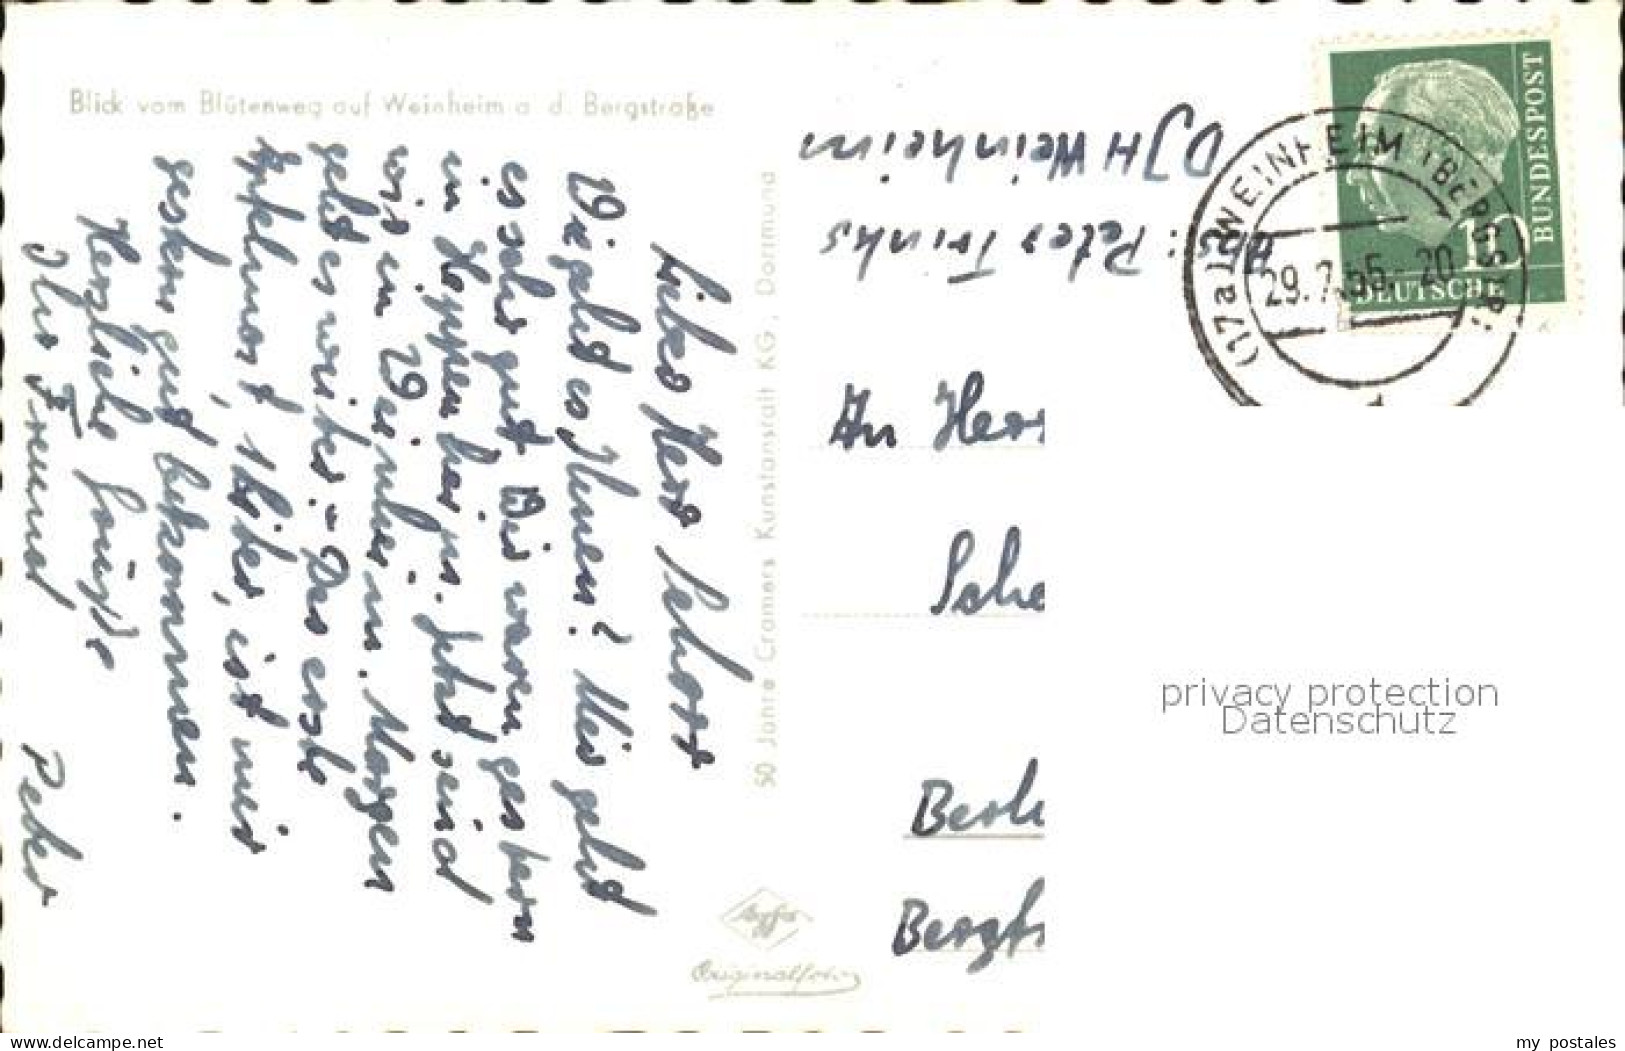 Blick vom Blütenweg auf Weinheim a. d. Bergstraße
Lieber Herr
Wie geht es Ihnen? Mir geht
es sehr gut. Wir waren gestern
in Heppenheim. Jetzt sind
wir in Weinheim. Morgen
geht es weiter. - Das erste
1 Liter, ist mir
gestern gut bekommen.
Herzliche Grüße
Ihr Freund Peter
50 Jahre Cramers Kunstanstalt KG, Dortmund
Agfa
Originalfoto
: Peter Trinks
DJH Weinheim
(17a) WEINHEIM (BERGSTR)
29.7.55.-20
BUNDESPOST
DEUTSCHE
10
An Herr
Sche
Berli
Bergfr
privacy protection
Datenschutz
www.ansichtskartenversand.com
my postales